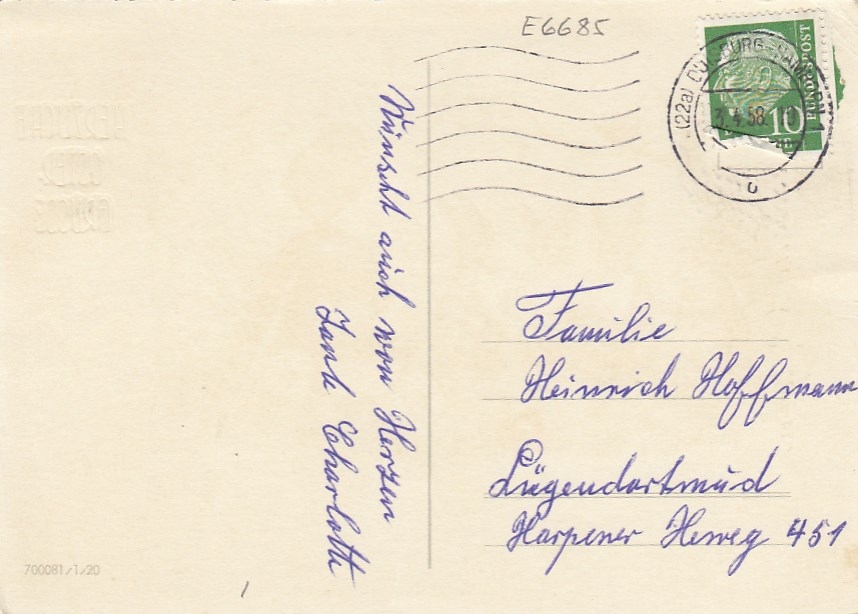 E6685
(22a) DUISBURG-HAMBORN 1
3.4.58
o
10
BUNDESPOST
Wünscht auch von Herzen
Tante Charlotte
Familie
Heinrich Hoffmann
Lügendortmud
Harpener Heweg 451
700081/1/20